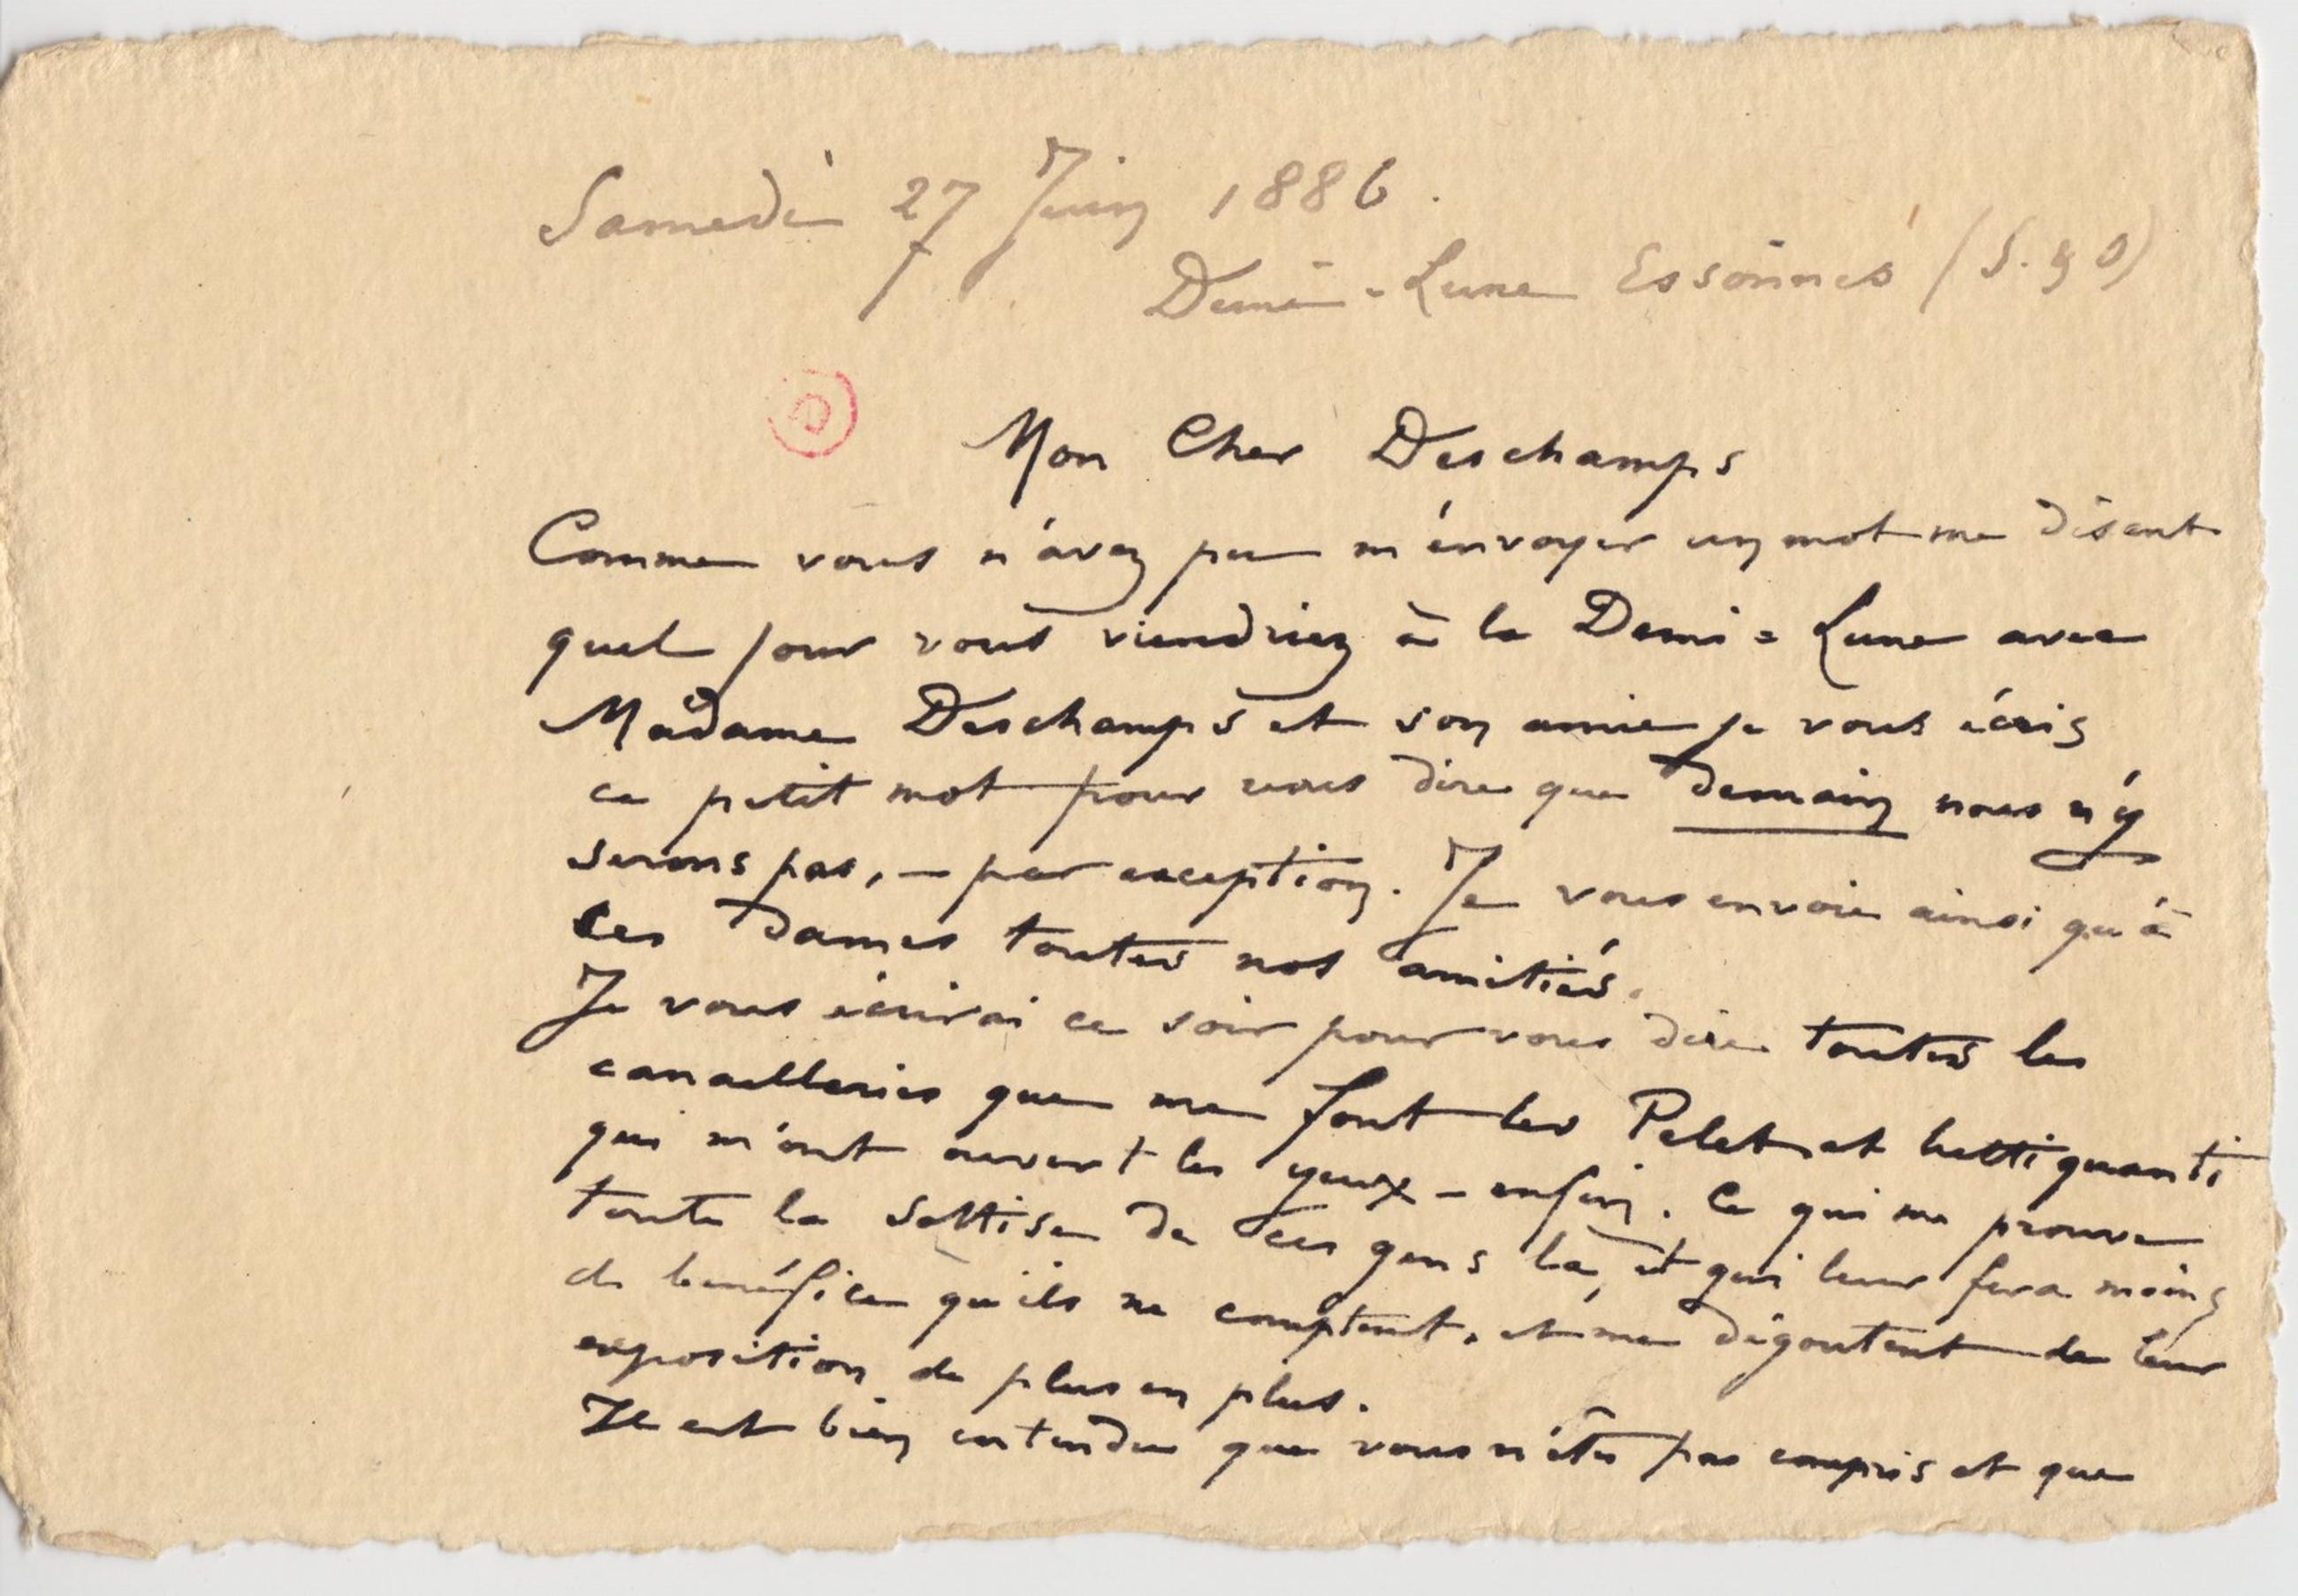 Samedi 27 Juin 1886.
Demi-Lune Essonnes (S. & O)
Mon Cher Deschamps
Comme vous n'avez pu m'envoyer un mot me disant
quel jour vous viendriez à la Demi=Lune avec
Madame Deschamps et son amie je vous écris
ce petit mot pour vous dire que demain nous n'y
serons pas, – par exception. Je vous envoie ainsi qu'à
ces Dames toutes nos amitiés.
Je vous écrirai ce soir pour vous dire toutes les
canailleries que me font les Pelet et tutti quanti
qui m'ont ouvert les yeux – enfin. Ce qui me prouve
toute la sottise de ces gens là, et qui leur fera moins
de bénéfice qu'ils ne comptent, et me dégoutent de leur
exposition de plus en plus.
Il est bien entendu que vous n'êtes pas compris et que